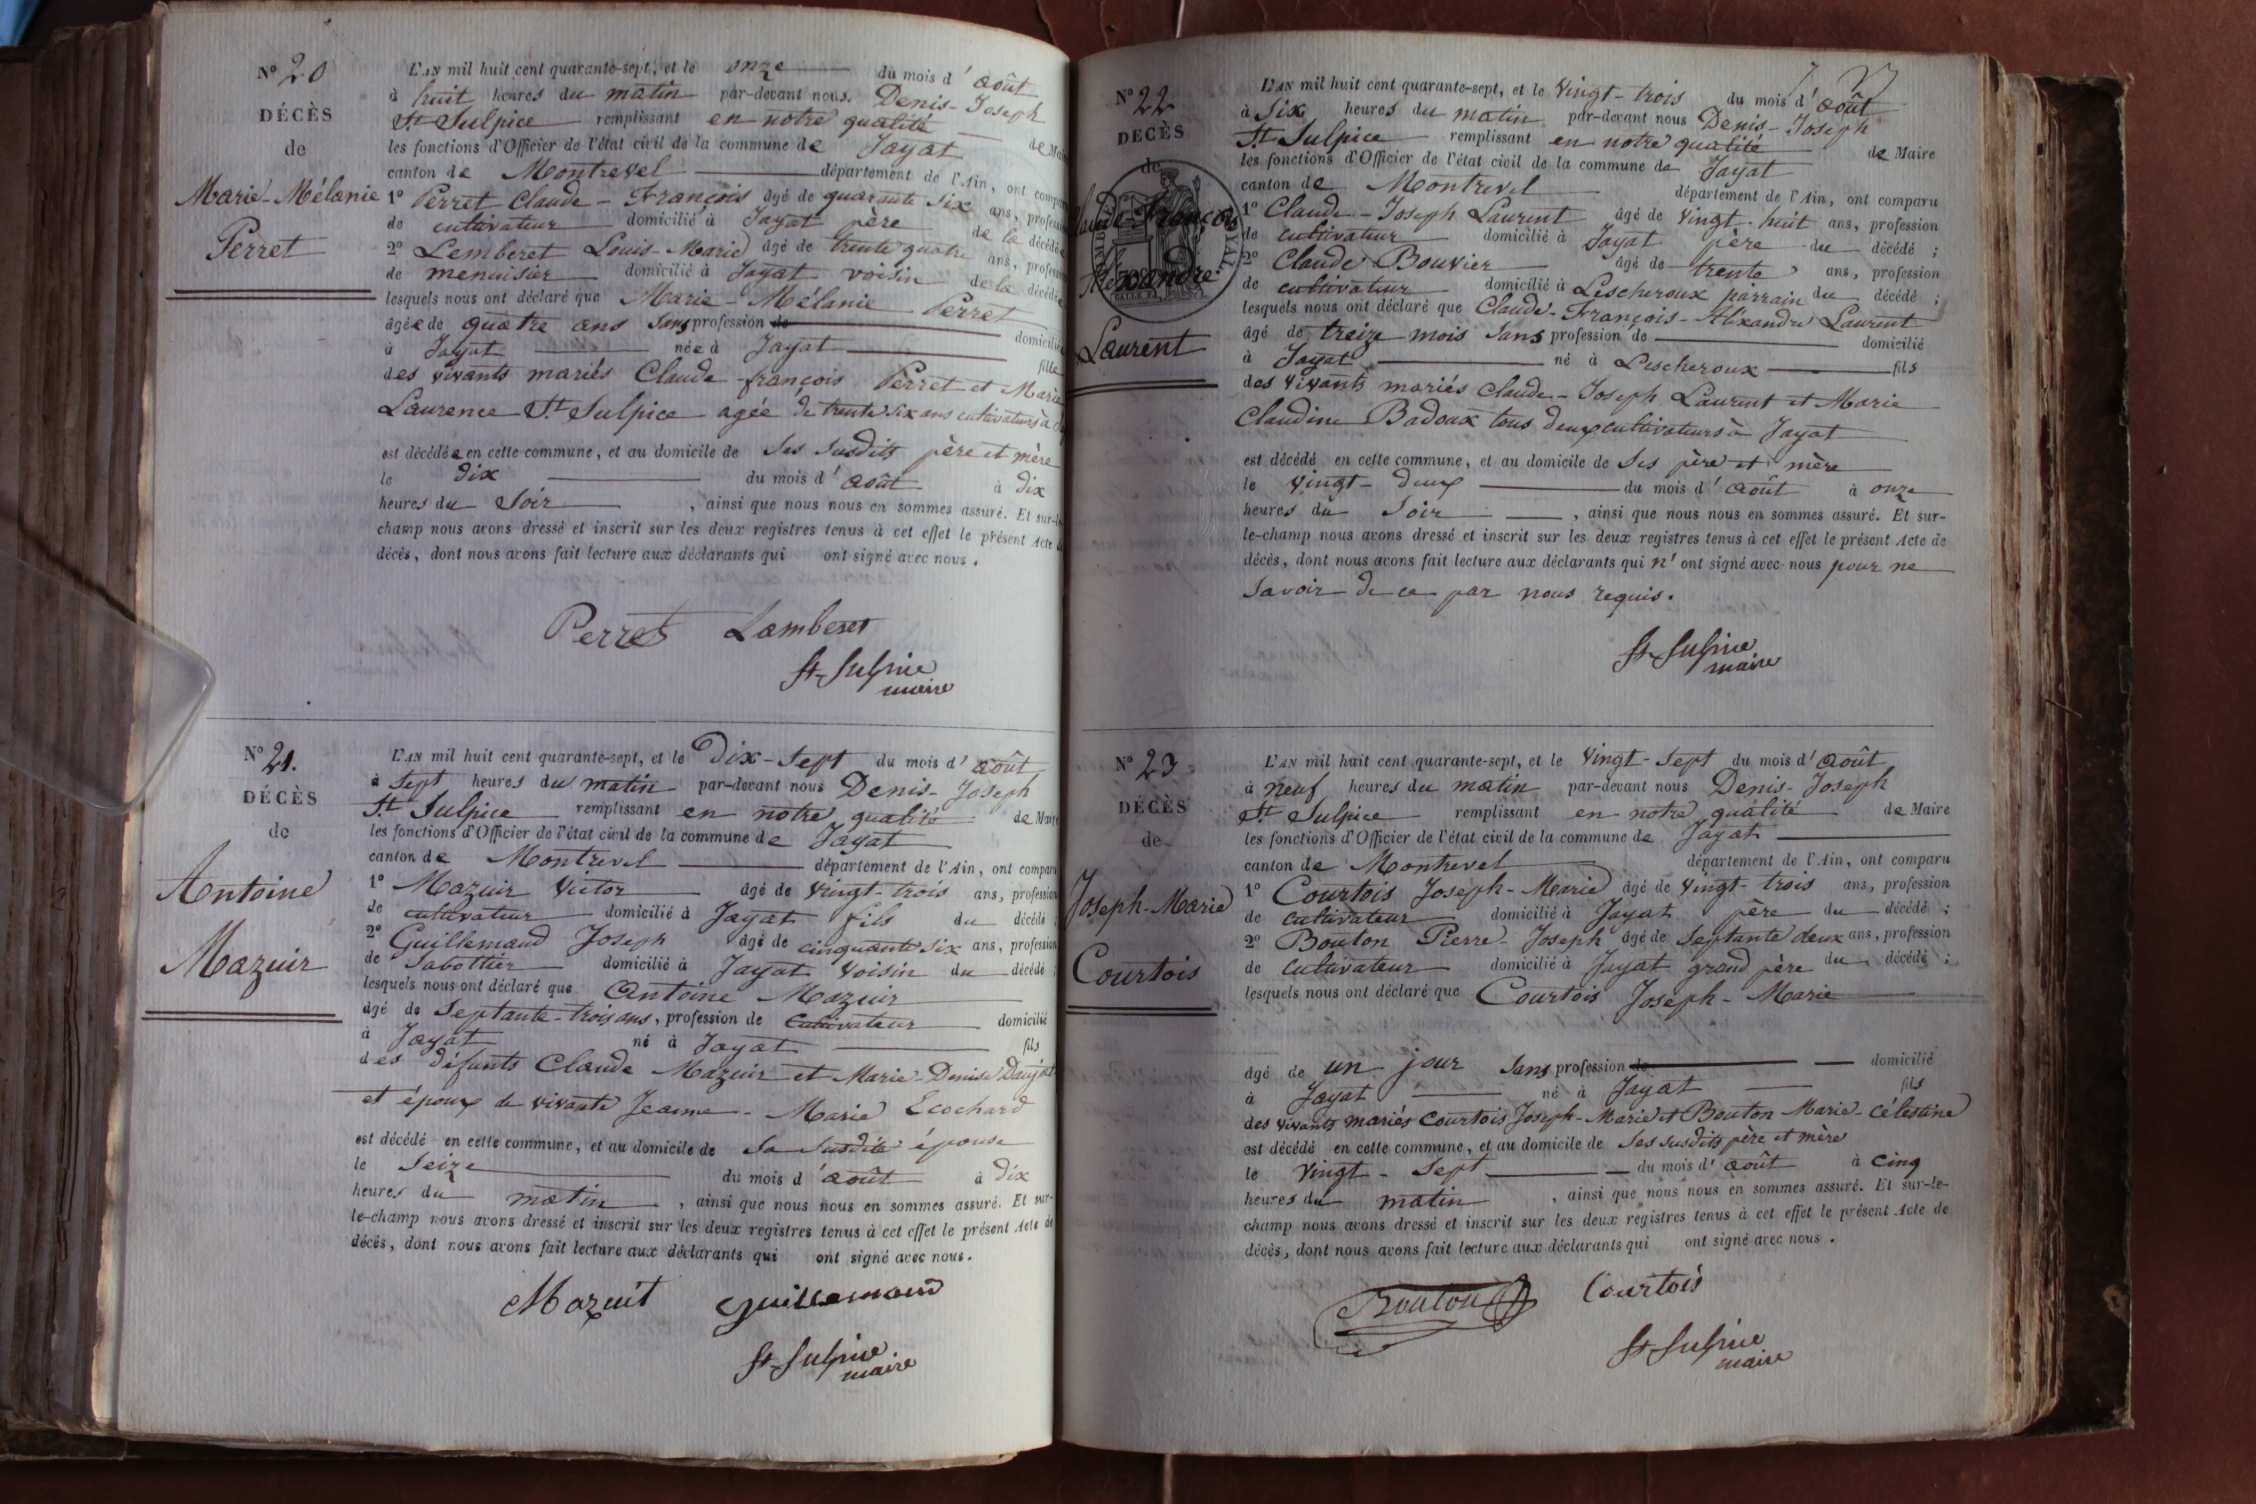 N° 20
DÉCÈS
de
Marie-Mélanie
Perret
L'AN mil huit cent quarante-sept, et le onze du mois d'août
à huit heures du matin par-devant nous Denis-Joseph
St Sulpice remplissant en notre qualité de Maire
les fonctions d'Officier de l'état civil de la commune de Jayat
canton de Montrevel département de l'Ain, ont comparu
1° Perret Claude-François âgé de quarante six ans, profession
de cultivateur domicilié à Jayat père de la décédée
2° Lemberet Louis-Marie âgé de trente quatre ans, profession
de menuisier domicilié à Jayat voisin de la décédée
lesquels nous ont déclaré que Marie-Mélanie Perret
âgée de quatre ans sans profession de domiciliée
à Jayat née à Jayat fille
des vivants mariés Claude-françois Perret et Marie
Laurence St Sulpice agée de trente six ans cultivateurs à
est décédée en cette commune, et au domicile de ses susdits père et mère
le dix du mois d'août à dix
heures du soir, ainsi que nous nous en sommes assuré. Et sur-le-
champ nous avons dressé et inscrit sur les deux registres tenus à cet effet le présent Acte de
décès, dont nous avons fait lecture aux déclarants qui ont signé avec nous.
Perret Lamberet
St-Sulpice
maire
N° 21.
DÉCÈS
de
Antoine
Mazuir
L'AN mil huit cent quarante-sept, et le Dix-sept du mois d'août
à sept heures du matin par-devant nous Denis-Joseph
St Sulpice remplissant en notre qualité de Maire
les fonctions d'Officier de l'état civil de la commune de Jayat
canton de Montrevel département de l'Ain, ont comparu
1° Mazuir Victor âgé de vingt-trois ans, profession
de cultivateur domicilié à Jayat fils du décédé ;
2° Guillemaud Joseph âgé de cinquante six ans, profession
de Sabottier domicilié à Jayat voisin du décédé ;
lesquels nous ont déclaré que Antoine Mazuir
âgé de Septante-trois ans, profession de cultivateur domicilié
à Jayat né à Jayat fils
des défunts Claude Mazuir et Marie-Denise Daujat
et époux de vivante Jeanne-Marie Ecochard
est décédé en cette commune, et au domicile de sa susdite épouse
le seize du mois d'août à dix
heures du matin, ainsi que nous nous en sommes assuré. Et sur-
le-champ nous avons dressé et inscrit sur les deux registres tenus à cet effet le présent Acte de
décès, dont nous avons fait lecture aux déclarants qui ont signé avec nous.
Mazuit Guillemaud
St-Sulpice
maire
N° 22
DÉCÈS
de
Claude-François
Alexandre
Laurent
L'AN mil huit cent quarante-sept, et le vingt-trois du mois d'août
à six heures du matin par-devant nous Denis-Joseph
St Sulpice remplissant en notre qualité de Maire
les fonctions d'Officier de l'état civil de la commune de Jayat
canton de Montrevel département de l'Ain, ont comparu
1° Claude-Joseph Laurent âgé de vingt-huit ans, profession
de cultivateur domicilié à Jayat père du décédé ;
2° Claude Bouvier âgé de trente ans, profession
de cultivateur domicilié à Lescheroux parrain du décédé ;
lesquels nous ont déclaré que Claude-François-Alixandre Laurent
âgé de treize mois sans profession de domicilié
à Jayat né à Lescheroux fils
des vivants mariés Claude-Joseph Laurent et Marie
Claudine Badoux tous deux cultivateurs à Jayat
est décédé en cette commune, et au domicile de ses père et mère
le vingt-deux du mois d'août à onze
heures du soir, ainsi que nous nous en sommes assuré. Et sur-
le-champ nous avons dressé et inscrit sur les deux registres tenus à cet effet le présent Acte de
décès, dont nous avons fait lecture aux déclarants qui n'ont signé avec nous pour ne
savoir de ce par nous requis.
St-Sulpice
maire
N° 23
DÉCÈS
de
Joseph-Marie
Courtois
L'AN mil huit cent quarante-sept, et le vingt-sept du mois d'août
à neuf heures du matin par-devant nous Denis-Joseph
St Sulpice remplissant en notre qualité de Maire
les fonctions d'Officier de l'état civil de la commune de Jayat
canton de Montrevel département de l'Ain, ont comparu
1° Courtois Joseph-Marie âgé de vingt-trois ans, profession
de cultivateur domicilié à Jayat père du décédé ;
2° Bouton Pierre-Joseph âgé de septante deux ans, profession
de cultivateur domicilié à Jayat grand père du décédé ;
lesquels nous ont déclaré que Courtois Joseph-Marie
âgé de un jour sans profession de domicilié
à Jayat né à Jayat fils
des vivants mariés Courtois Joseph-Marie et Bouton Marie-Célestine
est décédé en cette commune, et au domicile de ses susdits père et mère
le vingt-sept du mois d'août à cinq
heures du matin, ainsi que nous nous en sommes assuré. Et sur-le-
champ nous avons dressé et inscrit sur les deux registres tenus à cet effet le présent Acte de
décès, dont nous avons fait lecture aux déclarants qui ont signé avec nous.
Bouton Courtois
St-Sulpice
maire